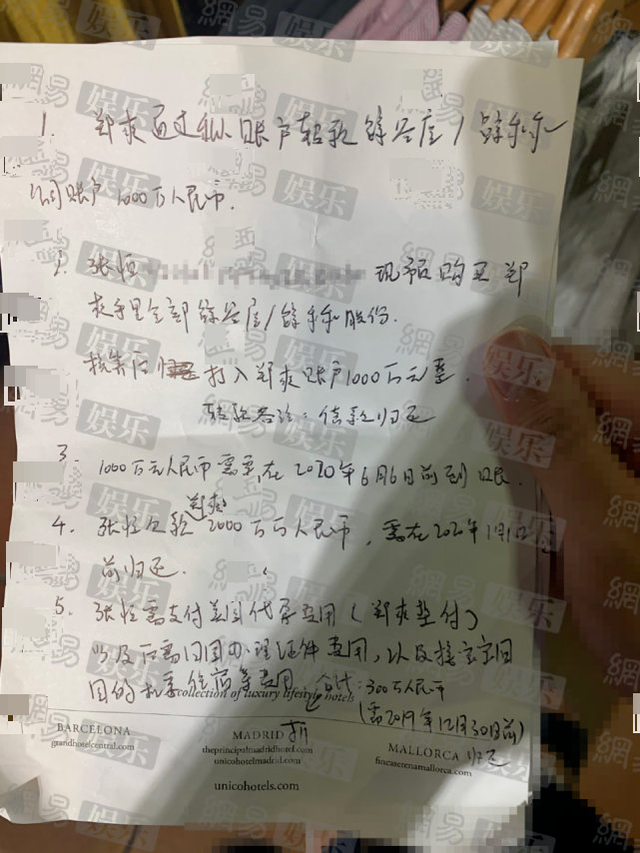 1. 郑爽通过私人账户转账 / 
公司账户1000万人民币.
2. 张恒 现 购买郑
爽手里全部 / 股份.
打入郑爽账户1000万元整.
转账备注：借款归还
3. 1000万元人民币需要在2020年6月6日前到账.
4. 张恒欠款郑爽2000万人民币，需在2020年1月1日
前归还.
5. 张恒需支付美国代孕费用（郑爽垫付）
以及后需回国办理证件费用，以及接宝宝回
国的机票住宿等费用 合计：300万人民币
collection of luxury lifestyle hotels
(需2019年12月30日前)
归还
BARCELONA
grandhotelcentral.com
MADRID
theprincipalmadridhotel.com
unicohotelmadrid.com
MALLORCA
fincaserenamallorca.com
unicohotels.com
網易娱乐